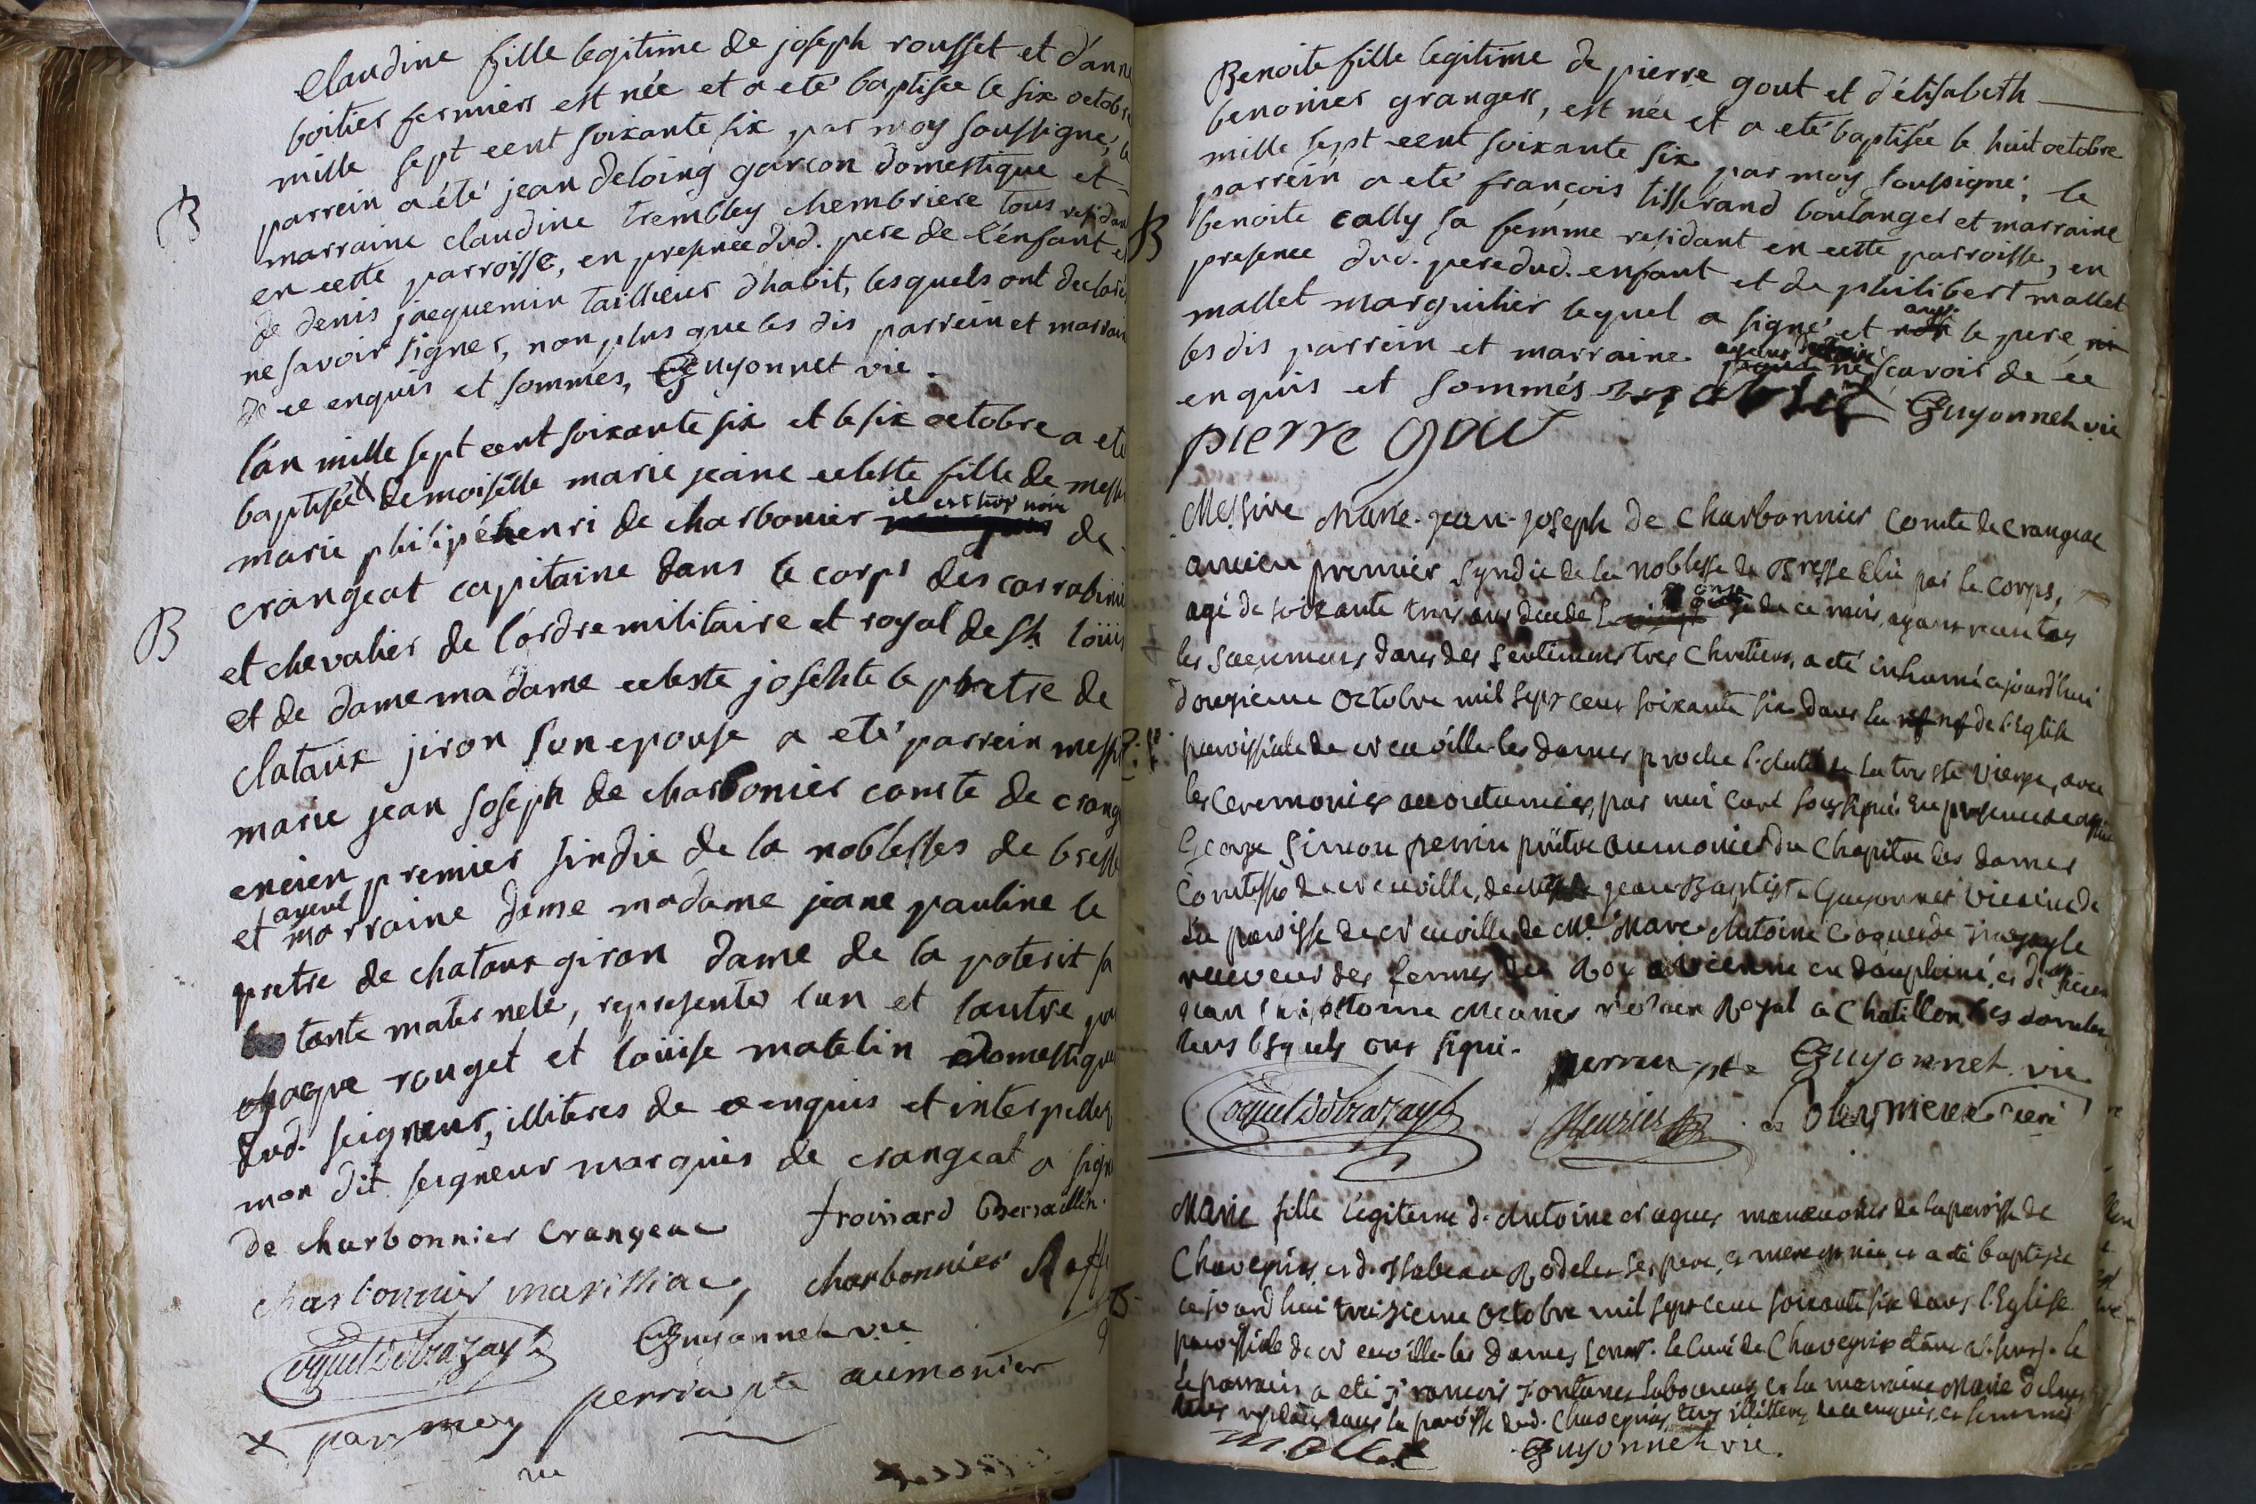 Claudine fille legitime de joseph rousset et d'anne
boitier fermiers est née et a eté baptisée le six octobre
mille sept cent soixante six par moy soussigné, le
parrein a été jean deloing garcon domestique et
marraine claudine trembley chembriere tous residan
B
en cette parroisse, en presence dud. pere de l'enfant et
de denis jacquemin tailleur d'habit, lesquels ont declaré
ne savoir signer, non plus que les dis parrein et marrain
de ce enquis et sommés, Guyonnet vic.
l'an mille sept cent soixante six et le six octobre a eté
baptisée x demoiselle marie jeane celeste fille de mess
marie philipe henri de charbonier il est tres noir de
crangeat capitaine dans le corps des carrabinie
B
et chevalier de l'ordre militaire et royal de st. loüis
et de dame madame celeste josehte le pretre de
chataux jiron son epouse a eté parrein mess
marie jean joseph de charbonier comte de crang
encien premier sindic de la noblesses de bresse
ayeul
et marraine dame madame jeane pauline le
pretre de chataux giron dame de la poterit sa
tante maternele, representés l'un et l'autre par
jacque rouget et loüise matelin domestique
dud. seigneur, illiteres de ce enquis et interpellés
mon dit seigneur marquis de crangeat a signé
de charbonnier Crangeac froissard Bersaillin
charbonnier marilliac, charbonnier
Coquet de trazayle Guyonnet vic
x par moy perrin pte aumonier
Benoite fille legitime de pierre gout et d'élisabeth
benonier granger, est née et a eté baptisée le huit octobre
mille sept cent soixante six par moy soussigné; le
parrein a eté françois tisserand boulanger et marraine
B
benoite cally sa femme residant en cette parroisse, en
presence dud. pere dud. enfant et de philibert mallet
mallet marguilier lequel a signé et aussi le pere
les dis parrein et marraine ne scavoir de ce
enquis et sommés Guyonnet vic
pierre gout
Messire Marie-jean-joseph de Charbonnier Comte de Crangeac
ancien premier Syndic de la noblesse de Bresse Elu par le corps,
agé de soixante trois ans decedé le onze de ce mois, ayant recu tous
les Sacremens dans des sentimens tres Chretiens, a eté inhumé ajourd'hui
douzieme Octobre mil sept cent soixante six dans la nef de l'Eglise
paroissiale de Neuville-les-dames proche l'Autel de la tres ste Vierge, avec
les Ceremonies accoutumées, par moi Curé soussigné En presence de
George Simon perrin prêtre aumonier du Chapitre des dames
Comtesses de Neuville, de jean Baptiste Guyonnet Vicaire de
la paroisse de Neuville de Me Marc Antoine Coquet de trazayle
receveur des fermes du Roy a Vienne en dauphiné, et de Sieur
jean Meunier notaire Royal a Chatillon les dombes
tous lesquels ont signé.
perrin pte Guyonnet vic
Coquet de trazayle Meunier curé
Marie fille légitime d'Antoine manœuvre de la paroisse de
Chaveyriat, et d'isabeau Rodelet ses pere et mere est née, et a été baptisée
cejourd'hui treizieme Octobre mil sept cent soixante six dans l'Eglise
B
paroissiale de Neuville-les-dames le Curé de Chaveyriat étant absent. le
le parrain a eté françois fontanes laboureur et la marraine Marie
tous residans dans la paroisse dud. Chaveyriat, tous illitteres de ce enquis et sommés
mallet Guyonnet vic.